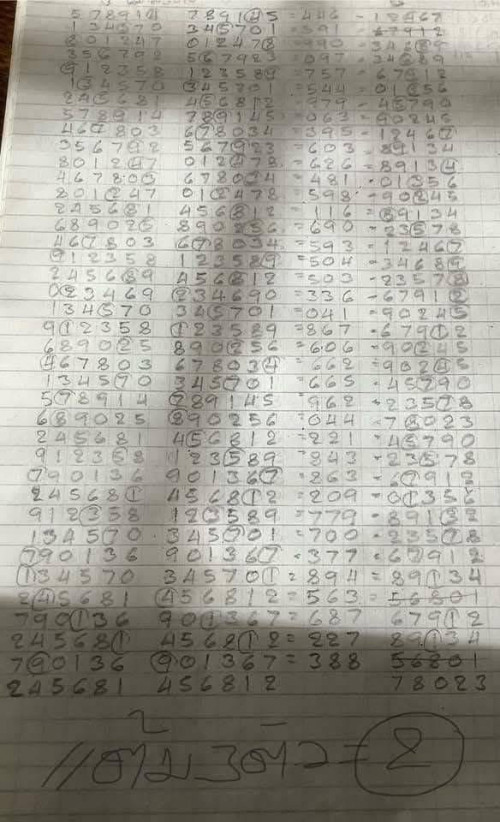 578914 789145 = 446 - 12467
134570 345701 = 391 - 67912
801247 012478 = 990 = 34689
356792 567923 = 097 - 34689
912358 123589 = 757 - 67912
134570 345701 = 544 = 01356
245681 456812 = 979 - 45790
578914 789145 = 063 = 90245
467803 678034 = 395 - 12467
356792 567923 = 603 = 89134
801247 012478 = 626 = 89134
467803 678034 = 481 - 01356
801247 012478 = 598 - 90245
245681 456812 = 116 = 89134
689025 890256 = 690 - 23578
467803 678034 = 593 - 12467
912358 123589 = 504 - 34689
245689 456812 = 503 - 23578
023469 234690 = 336 - 67912
134570 345701 = 041 - 90245
912358 123589 = 867 - 67912
689025 890256 = 606 - 90245
467803 678034 = 662 - 90245
134570 345701 = 665 - 45790
578914 789145 = 962 - 23578
689025 890256 = 044 - 78023
245681 456812 = 221 - 45790
912358 123589 = 843 - 23578
790136 901367 = 863 - 67912
245681 456812 = 209 - 01356
912358 123589 = 779 - 89132
134570 345701 = 700 - 23578
790136 901367 = 377 = 67912
134570 345701 = 894 = 89134
245681 456812 = 563 = 56801
790136 901367 = 687 67912
245681 456812 = 227 89134
790136 901367 = 388 56801
245681 456812 78023
แต้ม3ตัว = 2